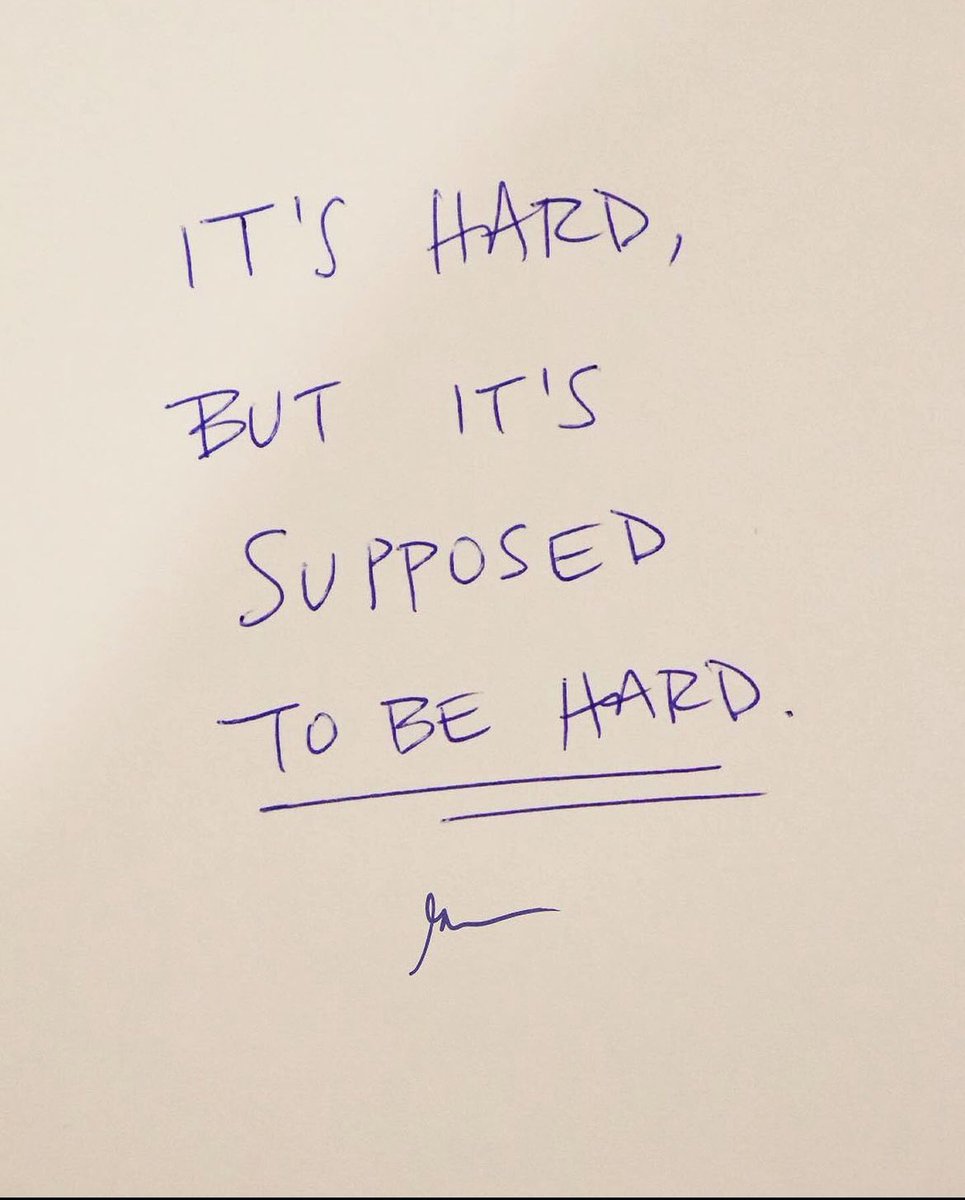 IT'S HARD,
BUT IT'S
SUPPOSED
TO BE HARD.